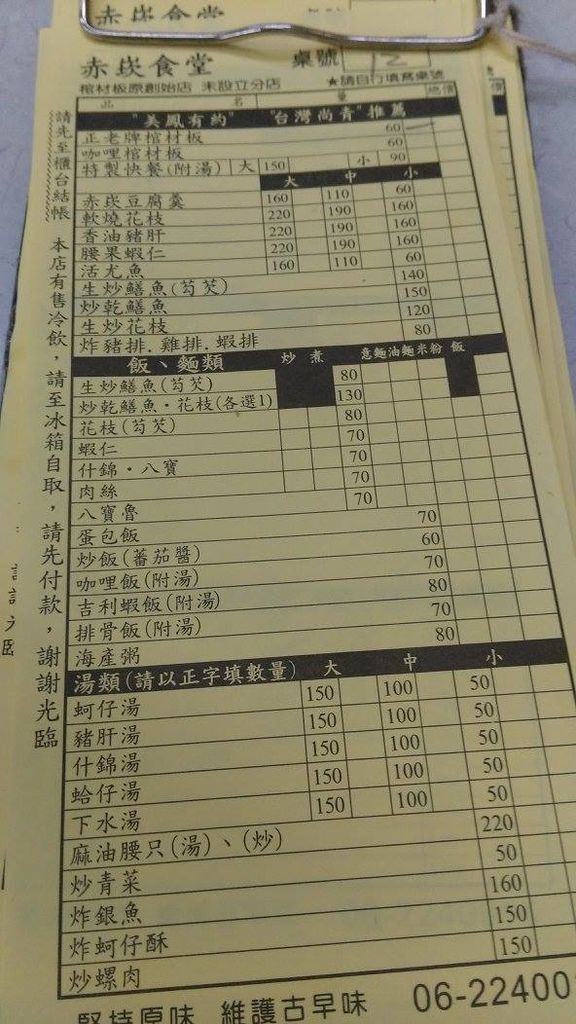 赤崁食堂
赤崁食堂 桌號 12
棺材板原創始店 未設立分店 ★請自行填寫桌號
品 名 量 總價
"美鳳有約" "台灣尚青"推薦
正老牌棺材板 60
咖哩棺材板 60
特製快餐(附湯) 大 150 小 90
大 中 小
赤崁豆腐羹 160 110 60
軟燒花枝 220 190 160
香油豬肝 220 190 160
腰果蝦仁 220 190 160
活尤魚 160 110 60
生炒鱔魚(芶芡) 140
炒乾鱔魚 150
生炒花枝 120
炸豬排.雞排.蝦排 80
飯、麵類 炒 煮 意麵 油麵 米粉 飯
生炒鱔魚(芶芡) 80
炒乾鱔魚‧花枝(各選1) 130
花枝(芶芡) 80
蝦仁 70
什錦‧八寶 70
肉絲 70
八寶魯 70
蛋包飯 70
炒飯(蕃茄醬) 60
咖哩飯(附湯) 70
吉利蝦飯(附湯) 80
排骨飯(附湯) 70
海產粥 80
湯類(請以正字填數量) 大 中 小
蚵仔湯 150 100 50
豬肝湯 150 100 50
什錦湯 150 100 50
蛤仔湯 150 100 50
下水湯 150 100 50
麻油腰只(湯)、(炒) 220
炒青菜 50
炸銀魚 160
炸蚵仔酥 150
炒螺肉 150
堅持原味 維護古早味 06-22400
請先至櫃台結帳 本店有售冷飲，請至冰箱自取，請先付款，謝謝光臨